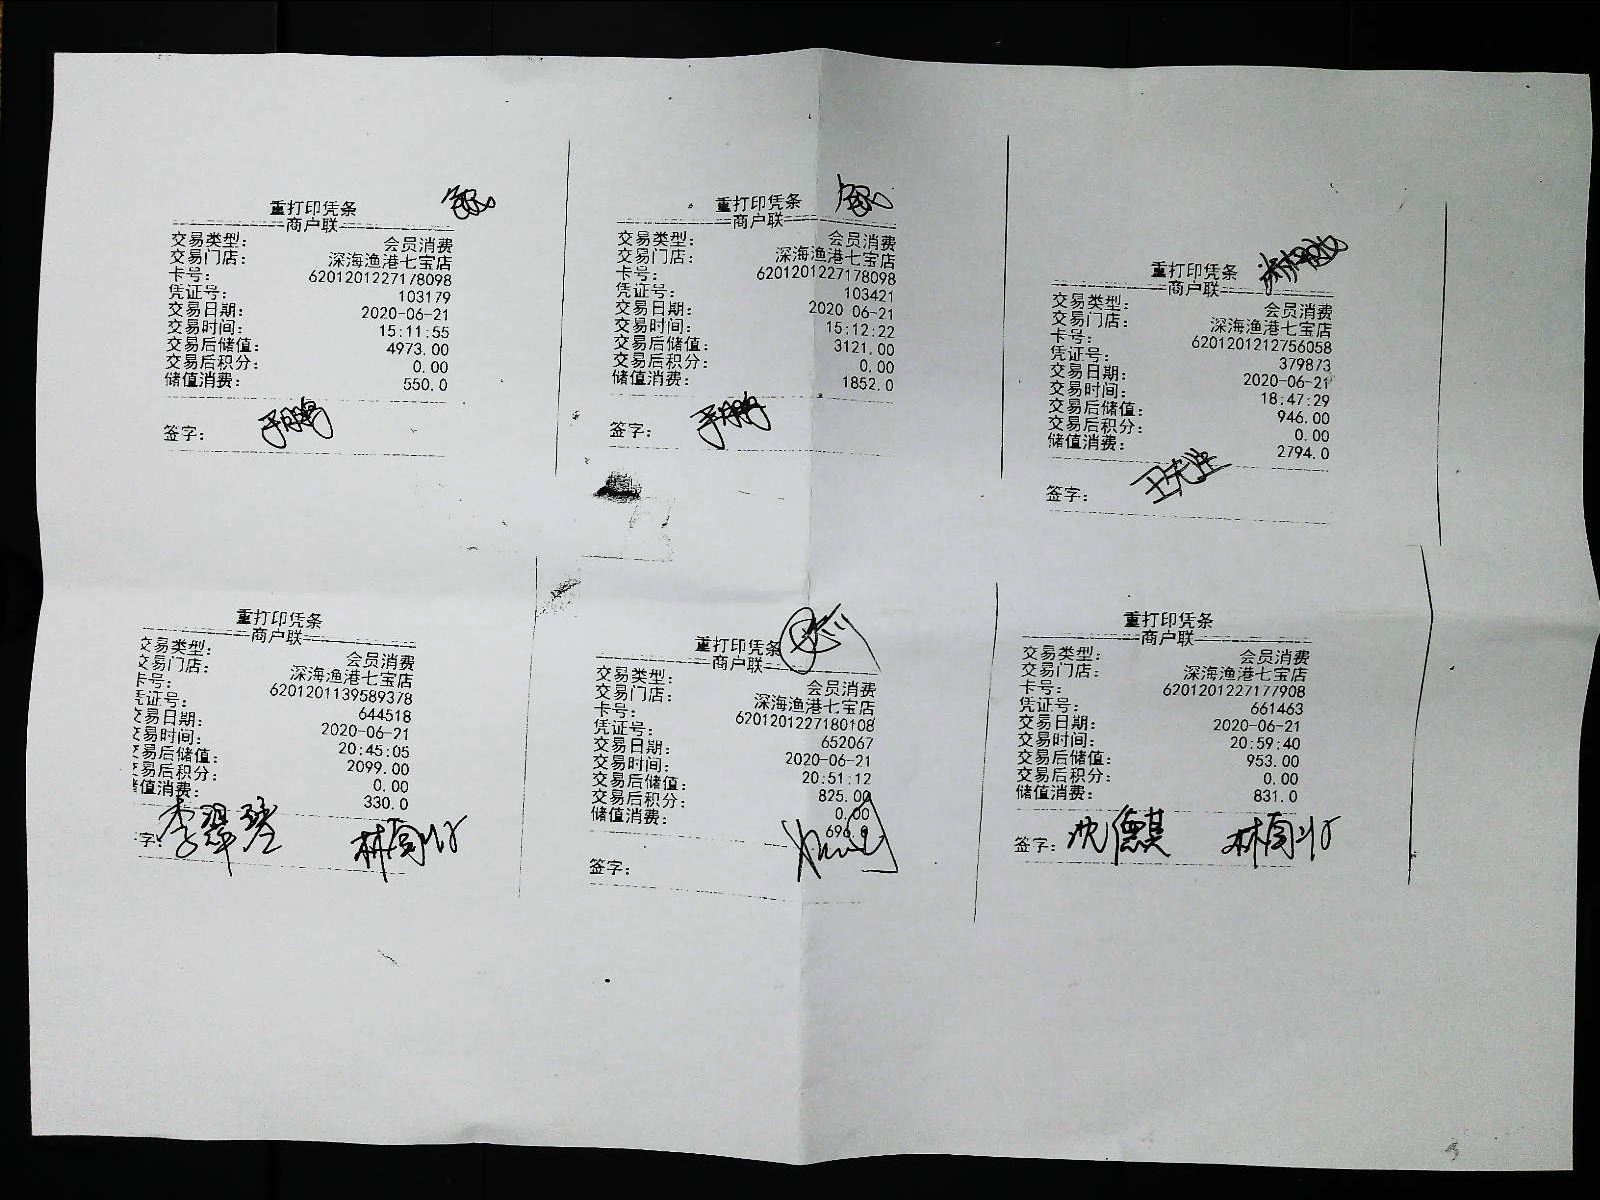 重打印凭条
商户联
交易类型: 会员消费
交易门店: 深海渔港七宝店
卡号: 6201201227178098
凭证号: 103179
交易日期: 2020-06-21
交易时间: 15:11:55
交易后储值: 4973.00
交易后积分: 0.00
储值消费: 550.0
签字:
重打印凭条
商户联
交易类型: 会员消费
交易门店: 深海渔港七宝店
卡号: 6201201227178098
凭证号: 103421
交易日期: 2020 06-21
交易时间: 15:12:22
交易后储值: 3121.00
交易后积分: 0.00
储值消费: 1852.0
签字:
重打印凭条
商户联
交易类型: 会员消费
交易门店: 深海渔港七宝店
卡号: 6201201212756058
凭证号: 379873
交易日期: 2020-06-21
交易时间: 18:47:29
交易后储值: 946.00
交易后积分: 0.00
储值消费: 2794.0
签字: 王先生
重打印凭条
商户联
交易类型: 会员消费
交易门店: 深海渔港七宝店
卡号: 6201201139589378
凭证号: 644518
交易日期: 2020-06-21
交易时间: 20:45:05
交易后储值: 2099.00
交易后积分: 0.00
储值消费: 330.0
字: 李翠琴
重打印凭条
商户联
交易类型: 会员消费
交易门店: 深海渔港七宝店
卡号: 6201201227180108
凭证号: 652067
交易日期: 2020-06-21
交易时间: 20:51:12
交易后储值: 825.00
交易后积分: 0.00
储值消费: 696.0
签字:
重打印凭条
商户联
交易类型: 会员消费
交易门店: 深海渔港七宝店
卡号: 6201201227177908
凭证号: 661463
交易日期: 2020-06-21
交易时间: 20:59:40
交易后储值: 953.00
交易后积分: 0.00
储值消费: 831.0
签字: 沈德其